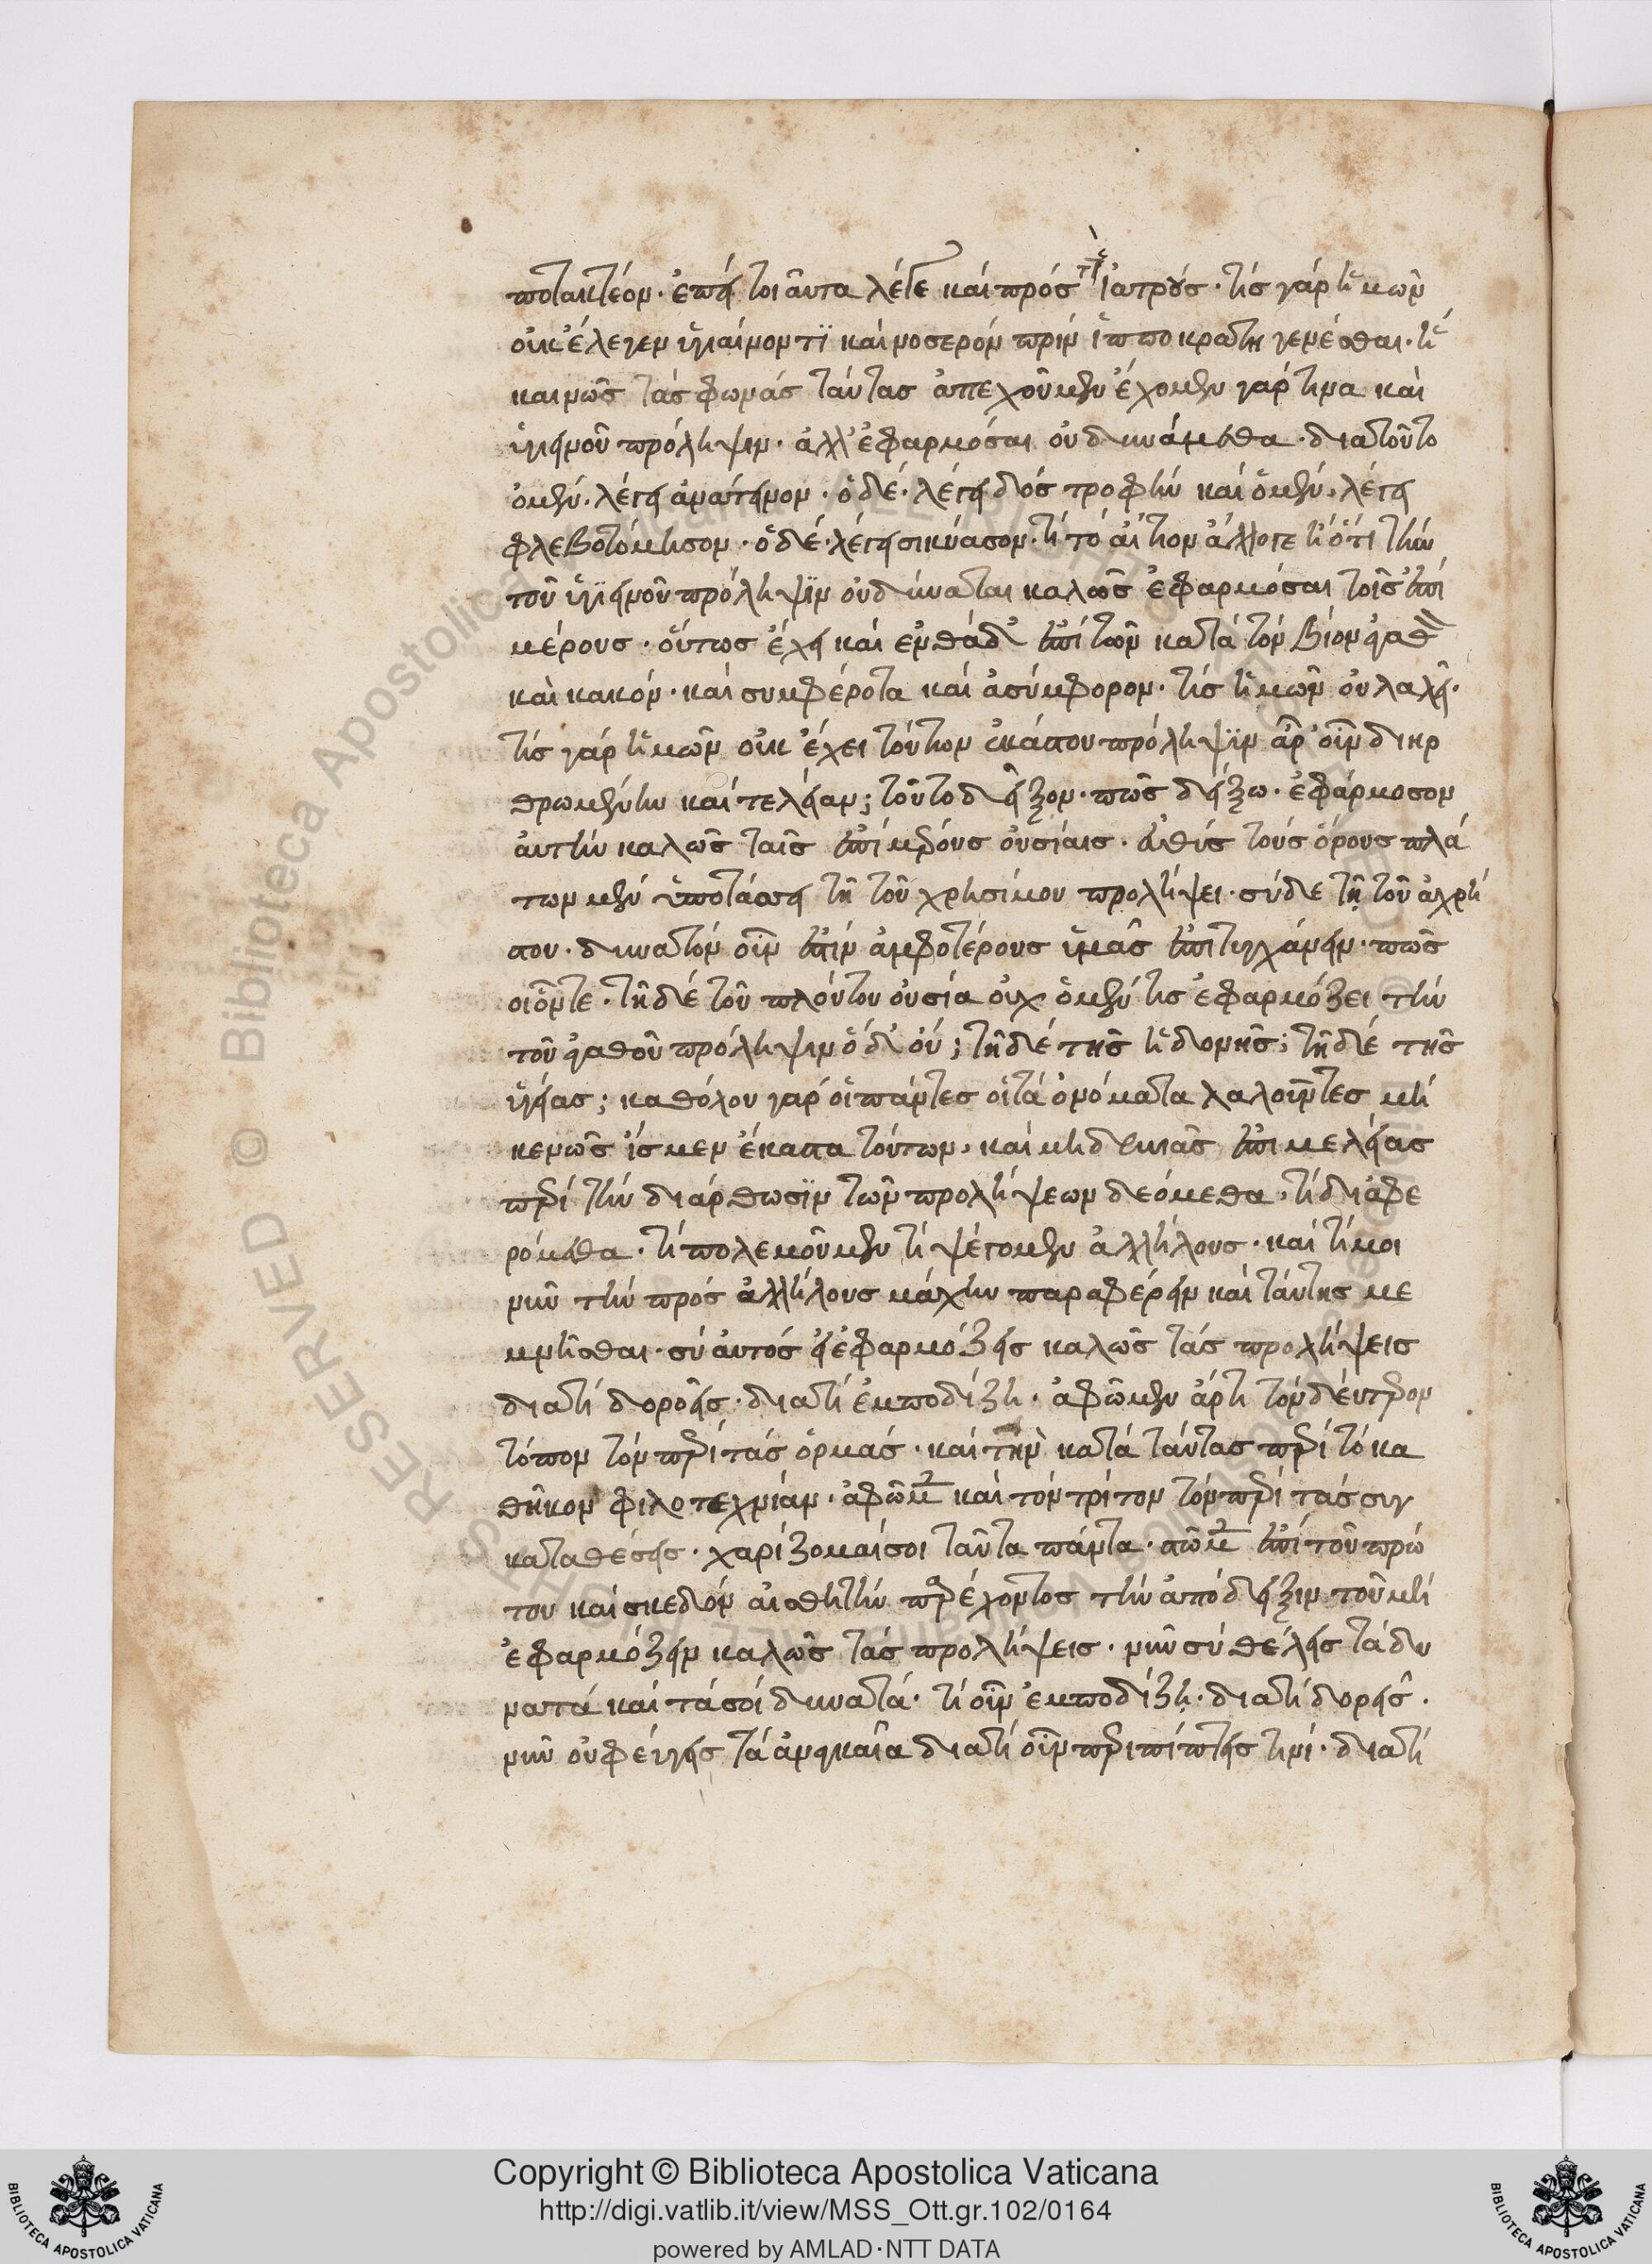 ποτακτέον. ἐπεὶ τοιαῦτα λέγε καὶ πρὸς τοὺς ἰατρούς. τίς γὰρ ἡμῶν
οὐκ ἔλεγεν ὑγιαίνόν τι καὶ νοσερόν πρὶν ἱπποκράτη γενέσθαι. ἢ
κενῶς τὰς φωνάς ταύτας ἀπεχοῦμεν ἔχομεν γάρ τινα καὶ
ὑγιεινοῦ πρόληψιν. ἀλλ' ἐφαρμόσαι οὐ δυνάμεθα. διατοῦτο
ὁ μέν. λέγει ἀνάτεινον. ὁ δέ. λέγει δός τροφήν καὶ ὁ μέν. λέγει
φλεβοτόμησον. ὁ δέ. λέγει σικύασον. τί τὸ αἴτιον ἄλλογε ἢ ὅτι τὴν
τοῦ ὑγιεινοῦ πρόληψιν οὐ δύναται καλῶς ἐφαρμόσαι τοῖς ἐπὶ
μέρους. οὕτως ἔχει καὶ ἐνθάδ' ἐπὶ τῶν κατὰ τὸν βίον ἀγαθὸν
καὶ κακόν. καὶ συμφέροντα καὶ ἀσύμφορον. τίς ἡμῶν οὐ λαλεῖ.
τίς γὰρ ἡμῶν οὐκ ἔχει τούτων ἑκάστου πρόληψιν ἆρ' οὖν διηρ
θρωμένην καὶ τελείαν; τοῦτο δεῖξον. πῶς δείξω. ἐφάρμοσον
αὐτὴν καλῶς ταῖς ἐπὶ μέρους οὐσίαις. εὐθύς τοὺς ὅρους πλά
των μὲν ὑποτάσσει τῇ τοῦ χρησίμου προλήψει. σὺ δὲ τῇ τοῦ ἀχρή
στου. δυνατὸν οὖν ἐστιν ἀμφοτέρους ὑμᾶς ἐπιτυγχάνειν. πῶς
οἷόν τε. τῇ δὲ τοῦ πλούτου οὐσίᾳ οὐχ ὁ μέν τις ἐφαρμόζει τὴν
τοῦ ἀγαθοῦ πρόληψιν ὁ δ' οὔ; τῇ δὲ τῆς ἡδονῆς; τῇ δὲ τῆς
ὑγείας; καθόλου γὰρ οἱ πάντες οἱ τὰ ὀνόματα λαλοῦντες μὴ
κενῶς ἴσμεν ἕκαστα τούτων. καὶ μηδεμιᾶς ἐπιμελείας
περὶ τὴν διάρθωσιν τῶν προλήψεων δεόμεθα. τί διαφε
ρόμεθα. τί πολεμοῦμεν τί ψέγομεν ἀλλήλους. καὶ τί μοι
νῦν τὴν πρὸς ἀλλήλους μάχην παραφέρειν καὶ ταύτης με
μνῆσθαι. σὺ αὐτὸς εἰ ἐφαρμόζεις καλῶς τὰς προλήψεις
διατί δυσροεῖς. διατί ἐμποδίζῃ. ἀφῶμεν ἄρτι τὸν δεύτερον
τόπον τὸν περὶ τὰς ὁρμάς. καὶ τὴν κατὰ ταύτας περὶ τὸ κα
θῆκον φιλοτεχνίαν. ἀφῶμεν καὶ τὸν τρίτον τὸν περὶ τὰς συγ
καταθέσεις. χαρίζομαί σοι ταῦτα πάντα. στῶμεν ἐπὶ τοῦ πρώ
του καὶ σχεδὸν αἰσθητὴν παρέχοντος τὴν ἀπόδειξιν τοῦ μὴ
ἐφαρμόζειν καλῶς τὰς προλήψεις. νῦν σὺ θέλεις τὰ δυ
νατά καὶ τὰ σοὶ δυνατά. τί οὖν ἐμποδίζῃ. διατί δυσροεῖς.
νῦν οὐ φεύγεις τὰ ἀναγκαῖα διατί οὖν περιπίπτεις τινί. διατί
Copyright © Biblioteca Apostolica Vaticana
http://digi.vatlib.it/view/MSS_Ott.gr.102/0164
powered by AMLAD·NTT DATA